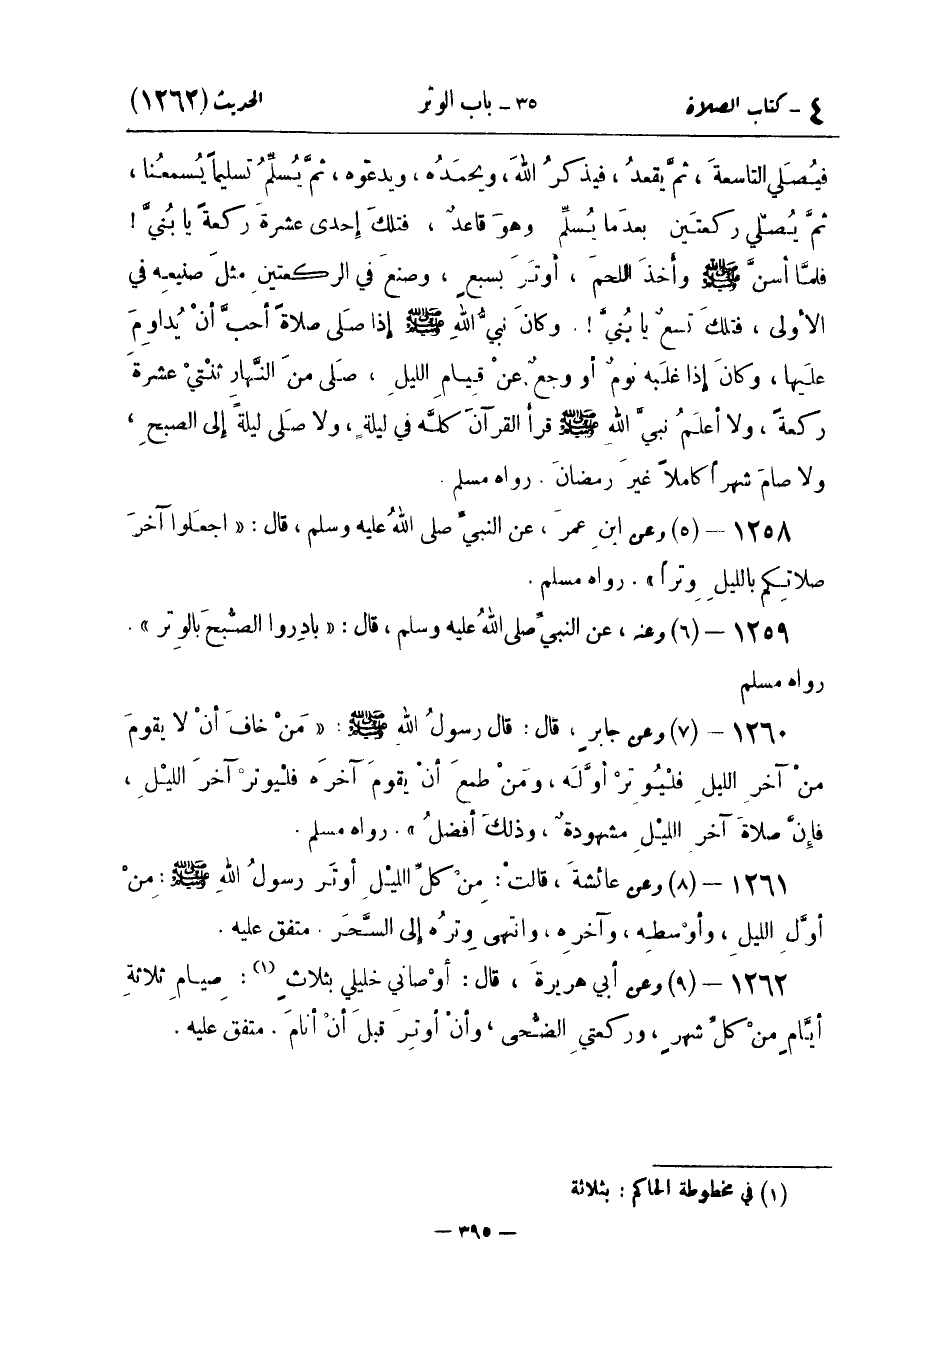 ٤ - كتاب الصلاة ٣٥ - باب الوتر الحديث (١٢٦٢)
فيُصَلي التاسعةَ ، ثمَّ يقعدُ ، فيذكرُ اللهَ ، ويحمَدُه ، ويدعوه ، ثمَّ يُسلِّمُ تسليماً يُسمعُنا ،
ثمَّ يُصلّي ركعتَين بعدَما يُسلِّم وهوَ قاعدٌ ، فتلكَ إحدى عشرةَ ركعةً يا بُنيَّ !
فلمَّا أسنَّ ﷺ وأخذَ اللحمَ ، أوترَ بسبعٍ ، وصنعَ في الركعتينِ مثلَ صنيعِه في
الأولى ، فتلكَ تسعٌ يا بُنيَّ ! . وكانَ نبيُّ اللهِ ﷺ إذا صلى صلاةً أحبَّ أنْ يُداوِمَ
علَيها ، وكانَ إذا غلبَه نومٌ أو وجعٌ عنْ قيامِ الليلِ ، صلى منَ النَّهارِ ثنْتيْ عشرةَ
ركعةً ، ولا أعلَمُ نبيَّ اللهِ ﷺ قرأ القرآنَ كلَّه في ليلةٍ ، ولا صلَى ليلةً إلى الصبحِ ،
ولا صامَ شهراً كاملاً غيرَ رمضانَ . رواه مسلم .
١٢٥٨ - (٥) وعن ابنِ عمرَ ، عن النبيِّ صلى اللهُ عليه وسلم ، قال : « اجعَلوا آخرَ
صلاتِكم بالليلِ وِتراً » . رواه مسلم .
١٢٥٩ - (٦) وعنه ، عن النبيِّ صلى اللهُ عليه وسلم ، قال : « بادِروا الصُّبحَ بالوِتر » .
رواه مسلم
١٢٦٠ - (٧) وعن جابرٍ ، قال : قال رسولُ اللهِ ﷺ : « مَنْ خافَ أنْ لا يقومَ
منْ آخرِ الليلِ فلْيُوتِرْ أوَّلَه ، ومَنْ طمعَ أنْ يقومَ آخرَه فلْيوترْ آخرَ الليْلِ ،
فإنَّ صلاةَ آخرِ الليْلِ مشهودةٌ ، وذلكَ أفضلُ » . رواه مسلم .
١٢٦١ - (٨) وعن عائشةَ ، قالتْ : مِنْ كلِّ الليْلِ أوتَر رسولُ اللهِ ﷺ : مِنْ
أوَّلِ الليلِ ، وأوْسطِه ، وآخرِه ، وانتهى وِترُه إلى السَّحَر . متفق عليه .
١٢٦٢ - (٩) وعن أبي هريرةَ ، قال : أوْصاني خليلي بثلاثٍ (١) : صِيامِ ثلاثةِ
أيَّامٍ منْ كلِّ شهرٍ ، وركعتيِ الضُّحى ، وأنْ أوتِرَ قبلَ أنْ أنامَ . متفق عليه .
(١) في مخطوطة الحاكم : بثلاثة
- ٣٩٥ -